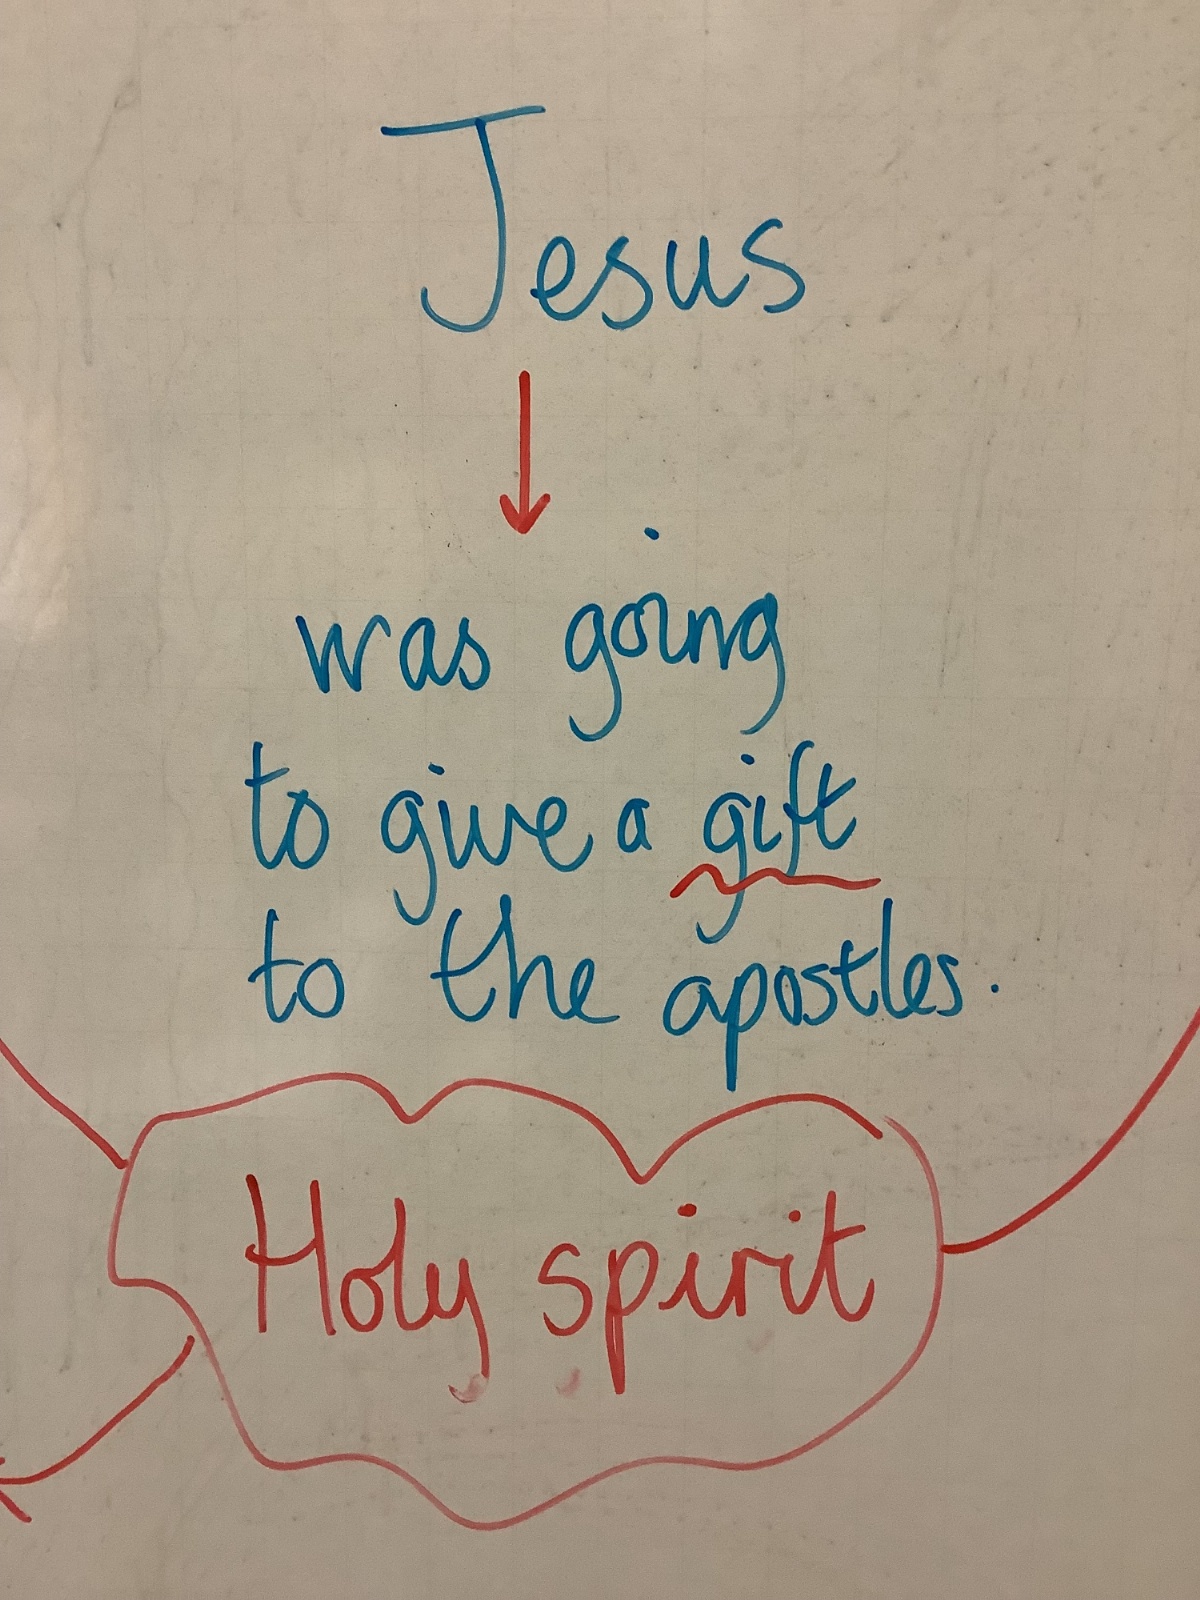 Jesus
was going
to give a gift
to the apostles.
Holy spirit